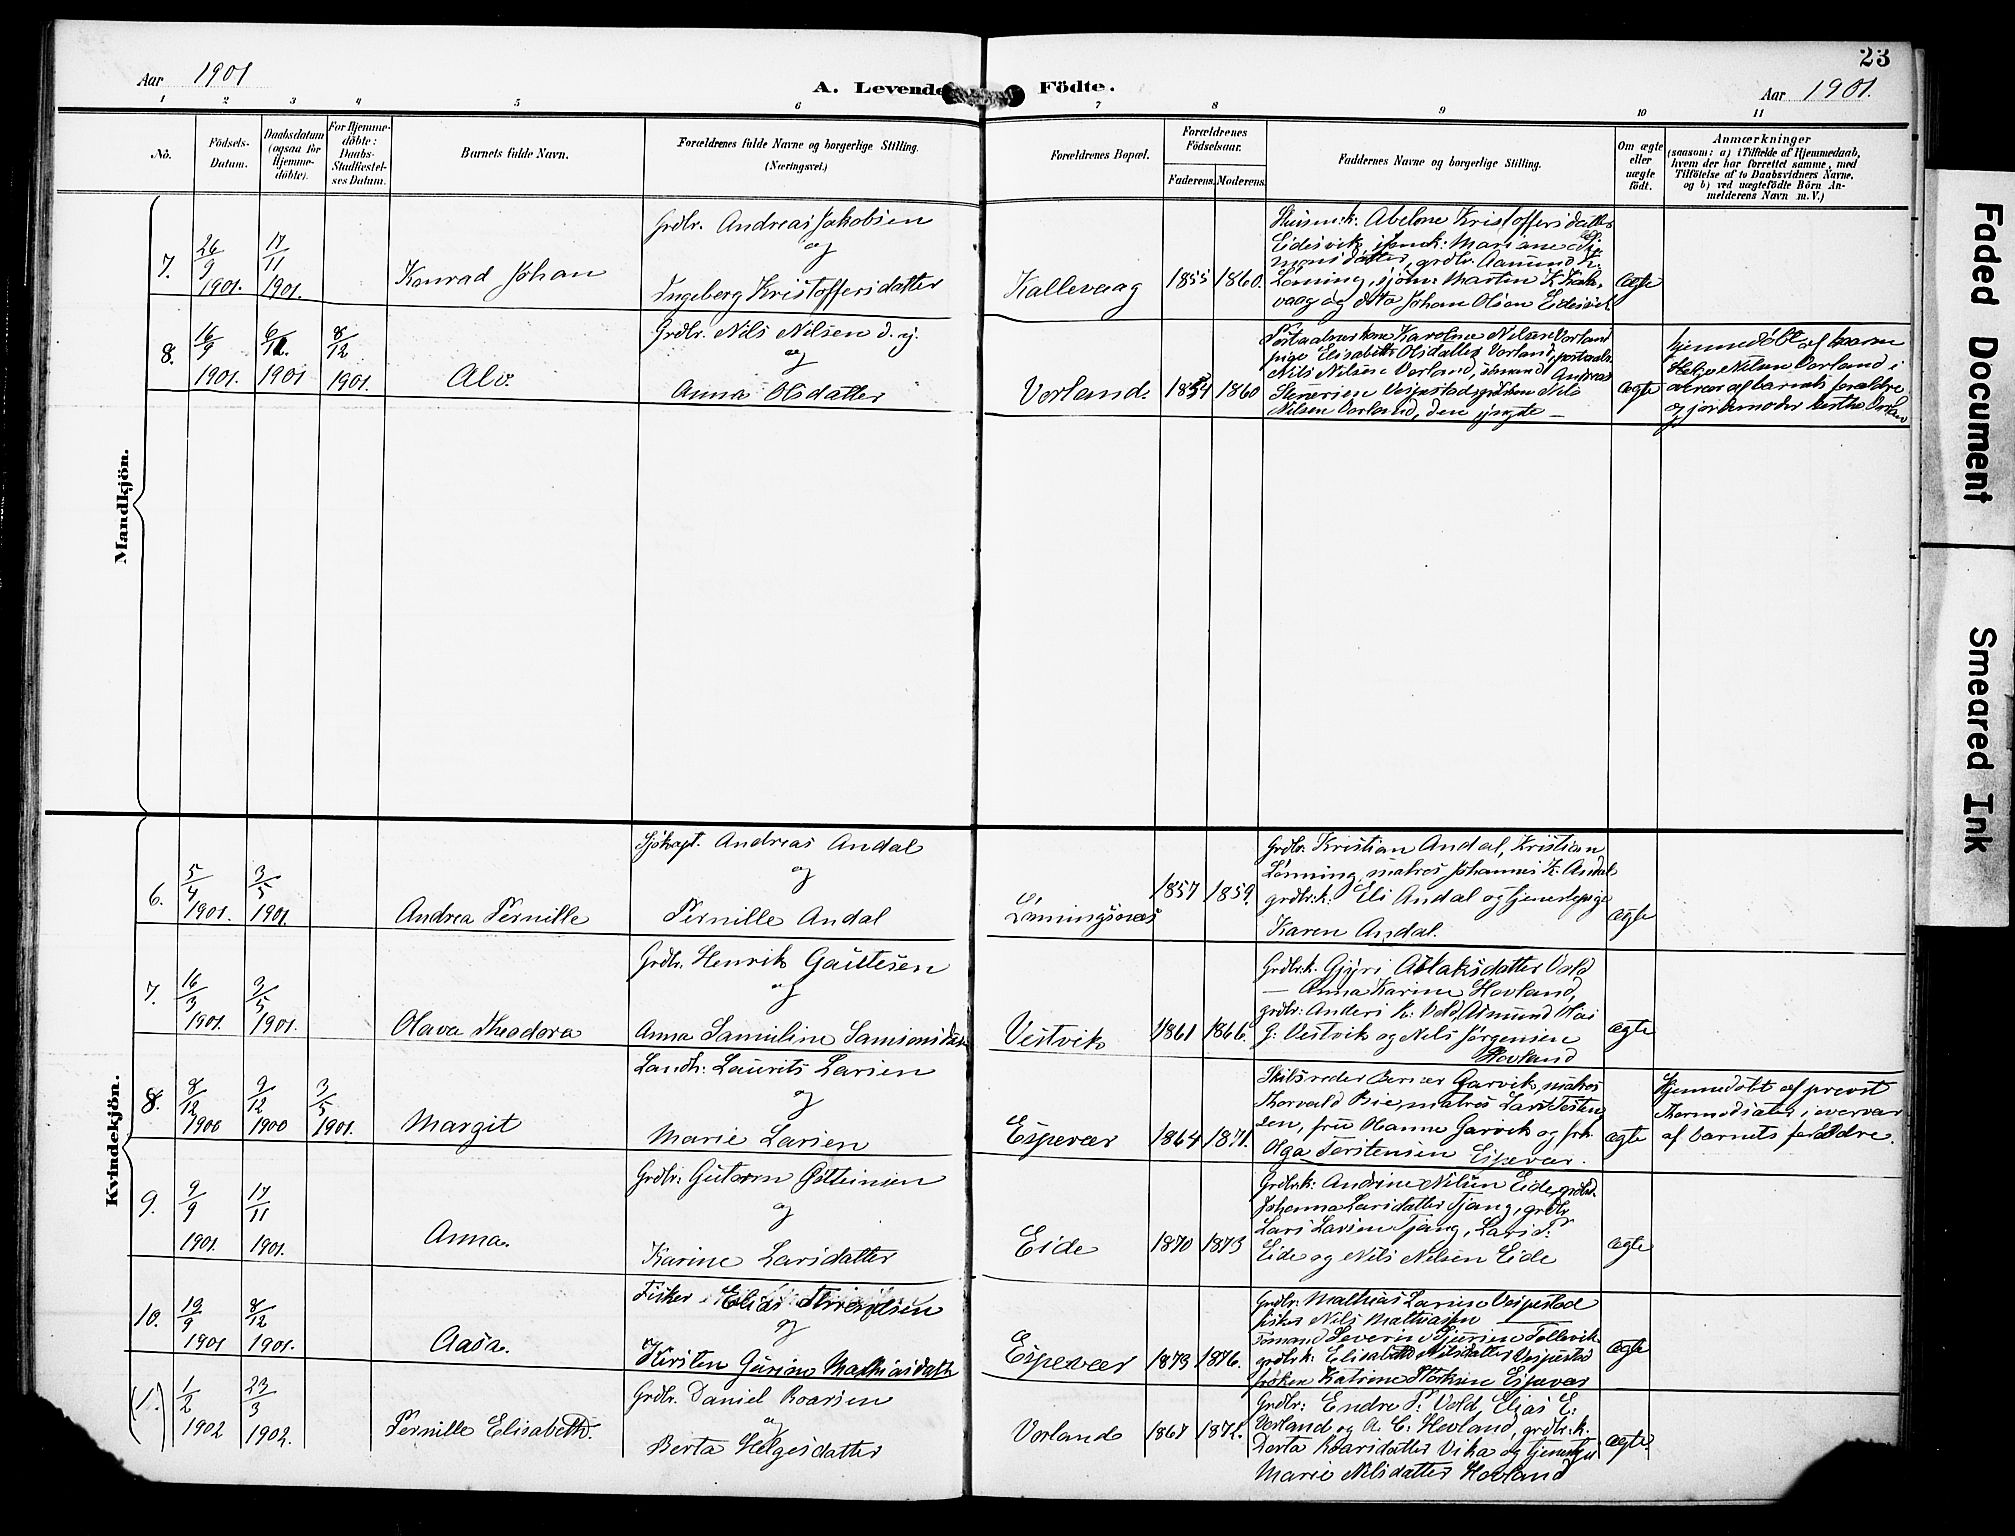 23
Aar 1901
A. Levende Födte.
Aar 1901.
1 2 3 4 5 6 7 8 9 10 11
No.
Födsels-
Datum.
Daabsdatum
(ogsaa for
Hjemme-
döbte).
For Hjemme-
döbte:
Daabs-
Stadfæstel-
ses Datum.
Barnets fulde Navn.
Forældrenes fulde Navne og borgerlige Stilling.
(Næringsvei.)
Forældrenes Bopæl.
Forældrenes
Födselsaar.
Faderens. Moderens.
Faddernes Navne og borgerlige Stilling.
Om ægte
eller
uægte
födt.
Anmærkninger
(saasom: a) i Tilfælde af Hjemmedaab,
hvem der har forrettet samme, med
Tilföielse af to Daabsvidners Navne,
og b) ved uægtefödte Börn An-
melderens Navn m. V.)
Mandkjön.
7.
26/9
1901.
17/11
1901.
Konrad Johan
Grdbr. Andreas Jakobsen
og
Ingeborg Kristoffersdatter
Kallevaag
1855 1860.
Husmk: Abelone Kristoffersdatter
Eidesvik, Mariane
monsdatter, grdbr. Aamund K.
Lönning, sjöm: Marten K. Kalle-
vaag og Otto Johan Olsen Eidesvik
ægte
8.
16/9
1901.
6/12.
1901
8/12
1901.
Alv.
Grdbr. Nils Nilsen d. y.
og
Anna Olsdatter
Vorland.
1854 1860
Postaabnerkone Karoline Nilsen Vorland
pige Elisabeth Olsdatter Vorland, postaabn.
Nils Nilsen Vorland, Andreas
Severin Vespestad Nils
Nilsen Vorland, den yngre –
ægte
hjemmedöbt af
Helje Nilsen Vorland i
overvær af barnets forældre
og jordemoder Berthe Vorland
Kvindekjön.
6.
5/4
1901.
3/5
1901.
Andrea Pernille
Sjökapt. Andreas Andal
og
Pernille Andal
Lönningsnæs
1857 1859.
Grdbr: Kristian Andal, Kristian
Lönning, matros Johannes K. Andal
grdbr.k. Eli Andal og tjenestepige
Karen Andal.
ægte
7.
16/3
1901.
3/5
1901.
Olava Theodora
Grdbr. Henrik Gautesen
og
Anna Samuline Samsonsdatter
Vestvik
1861 1866.
Grdbr.k. Gjyri Aslaksdatter Vold
— Anna Karine Hovland,
grdbr: Anders K. Vold, Asmund
G: Vestvik og Nils Jörgensen
Hovland
ægte
8.
8/12
1900
9/12
1900
3/5
1901.
Margit
Landh: Laurits Larsen
og
Marie Larsen
Espevær
1864 1871.
Skibsreder Berner Garvik, matros
Thorvald Bie, matros Lars Torsten-
sen, fru Hanne Garvik og frk
Olga Torstensen Espevær.
ægte
Hjemmedöbt af provst
Thormodsæter i overvær
af barnets forældre.
9.
9/9
1901.
17/11
1901.
Anna.
Grdbr: Gutorm Östensen
og
Karine Larsdatter
Eide
1870 1873
Grdbr.k: Andrine Nilsen Eide,
Johanna Larsdatter Tjong, grdbr
Lars Larsen Tjong, Lars
Eide og Nils Nilsen Eide
ægte
10.
19/9
1901
8/12
1901.
Aasa.
Fisker Elias
og
Kirsten Gurine Mathiasdatter
Espevær
1873 1876.
Grdbr: Mathias Larsen Vespestad
fisker Nils Mathiassen —
Severin Sjursen Tollevik
grdbr.k: Elisabeth Nilsdatter Vespestad
fröken Katrine Espevær
ægte
(1.)
1/2
1902
23/3
1902.
Pernille Elisabeth.
Grdbr. Daniel Roarsen
og
Berta Helgesdatter
Vorland
1867 1872.
Grdbr: Endre P. Vold, Elias E.
Vorland og A. C. Hovland, grdbr.k.
Dorta Roarsdatter Vika og tjenestepi
Marie Nilsdatter Hovland
ægte.
Faded Document
Smeared Ink